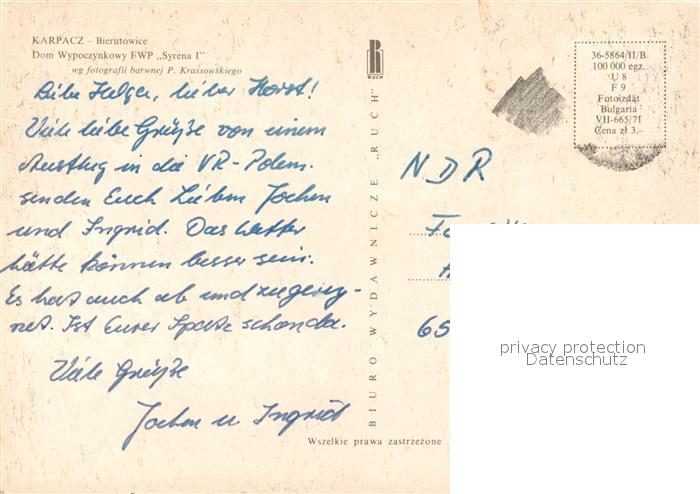 KARPACZ – Bierutowice
Dom Wypoczynkowy FWP „Syrena I"
wg fotografii barwnej P. Krassowskiego
Liebe Helga, lieber Horst!
Viele liebe Grüße von einem
Ausflug in die VR-Polen.
senden Euch Jochen
und Ingrid. Das Wetter
hätte können besser sein.
Es hat auch ab und zu gereg-
net. Ist Eurer Spatz schon da.
Viele Grüße
Jochen u Ingrid
RUCH
BIURO WYDAWNICZE „RUCH"
36-5864/II/B
100 000 egz.
U 8
F 9
Fotoizdat
Bulgaria
VII-665/71
Cena zł 3.–
NDR
65
privacy protection
Datenschutz
Wszelkie prawa zastrzeżone